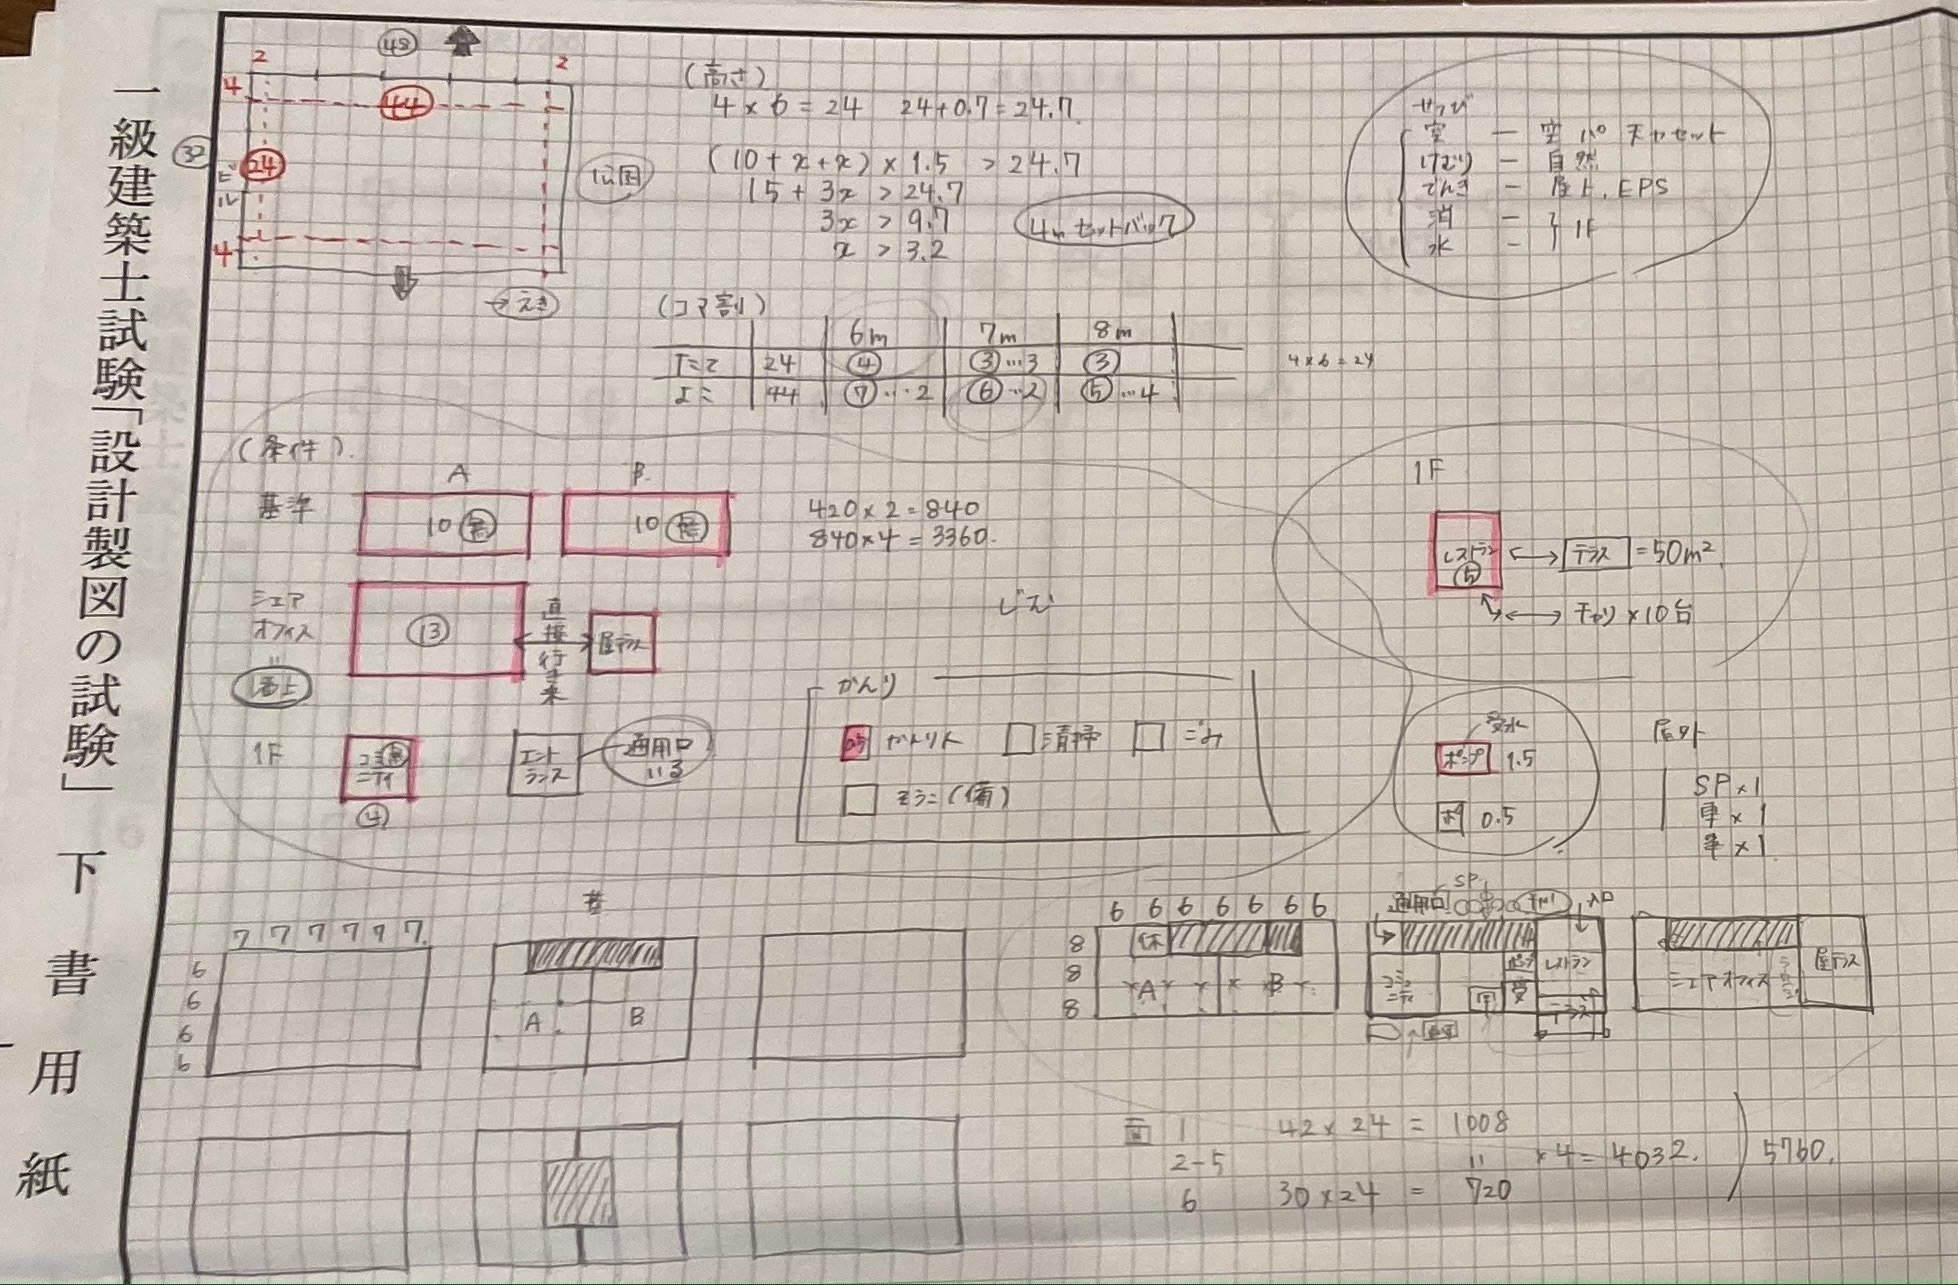 一級建築士試験「設計製図の試験」下書用紙
48
2
2
4
44
32
24
ビル
4
公園
→えき
(高さ)
4×6=24 24+0.7=24.7
(10+x+x)×1.5 >24.7
15+3x >24.7
3x >9.7
x >3.2
4mセットバック
せつび
空 — 空パ 天カセット
けむり — 自然
でんき — 屋上、EPS
消 —
水 —
1F
(コマ割)
6m 7m 8m
タテ 24 ④ ③…3 ③
ヨコ 44 ⑦…2 ⑥…2 ⑤…4
4×6=24
(条件).
A B
基準 10 10
420×2=840
840×4=3360.
シェアオフィス
⑬
直接行き来
屋テラス
1F
コミュニティ
④
エントランス
通用口いる
かんり
かんり人
清掃
ごみ
そうこ(備)
1F
レストラン
⑤
テラス =50m²
チャリ×10台
受水
ポンプ 1.5
ポ 0.5
屋外
SP×1
車×1
車×1
7 7 7 7 7 7
6
6
6
6
基
A B
6 6 6 6 6 6 6
8
8
8
休
A B
通用口
SP
入口
コミュニティ
ポンプ
受
レストラン
テラス
シェアオフィス
屋テラス
1 42×24 = 1008
2-5 〃 ×4=4032.
6 30×24 = 720
5760.